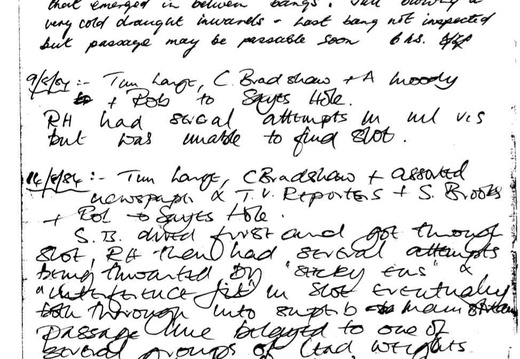 that emerged in between bangs. Still blowing a
very cold draught inwards - Last bang not inspected
but passage may be passable soon 6 hrs.
9/8/84 :- Tim Large, C. Bradshaw + A Moody
+ Rob to Sayes Hole.
RH had serial attempts in nil vis
but was unable to find slot.
14/8/84 :- Tim Large, C Bradshaw + assorted
newspaper & T.V. Reporters + S. Brooks
+ Rob to Sayes Hole.
S.B. dived first and got through
slot, RH then had several attempts
being thwarted by "sticky ears" &
"interference fit" in slot eventually
both through into superb main stream
passage line belayed to one of
several groups of lead weights